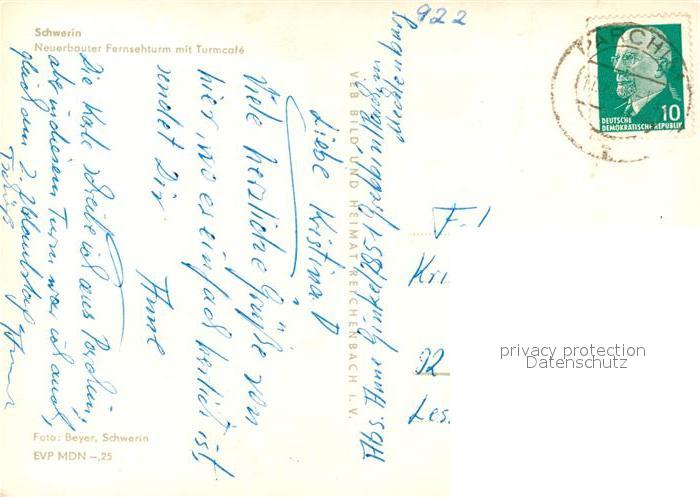 Schwerin
Neuerbauter Fernsehturm mit Turmcafé
922
PARCHIM
DEUTSCHE
DEMOKRATISCHE REPUBLIK
10
Liebe Kristina!
Viele herzliche Grüße von
hier, wo es einfach herrlich ist,
sendet Dir
Anne
Die Karte schreibe ich aus Parchim,
aber in diesem Turm war ich auch,
gleich am 2. Urlaubstag.
Tschüß Anne
Abs. Anne
2851
VEB BILD UND HEIMAT REICHENBACH I. V.
Kri
92
Les
privacy protection
Datenschutz
Foto: Beyer, Schwerin
EVP MDN -,25